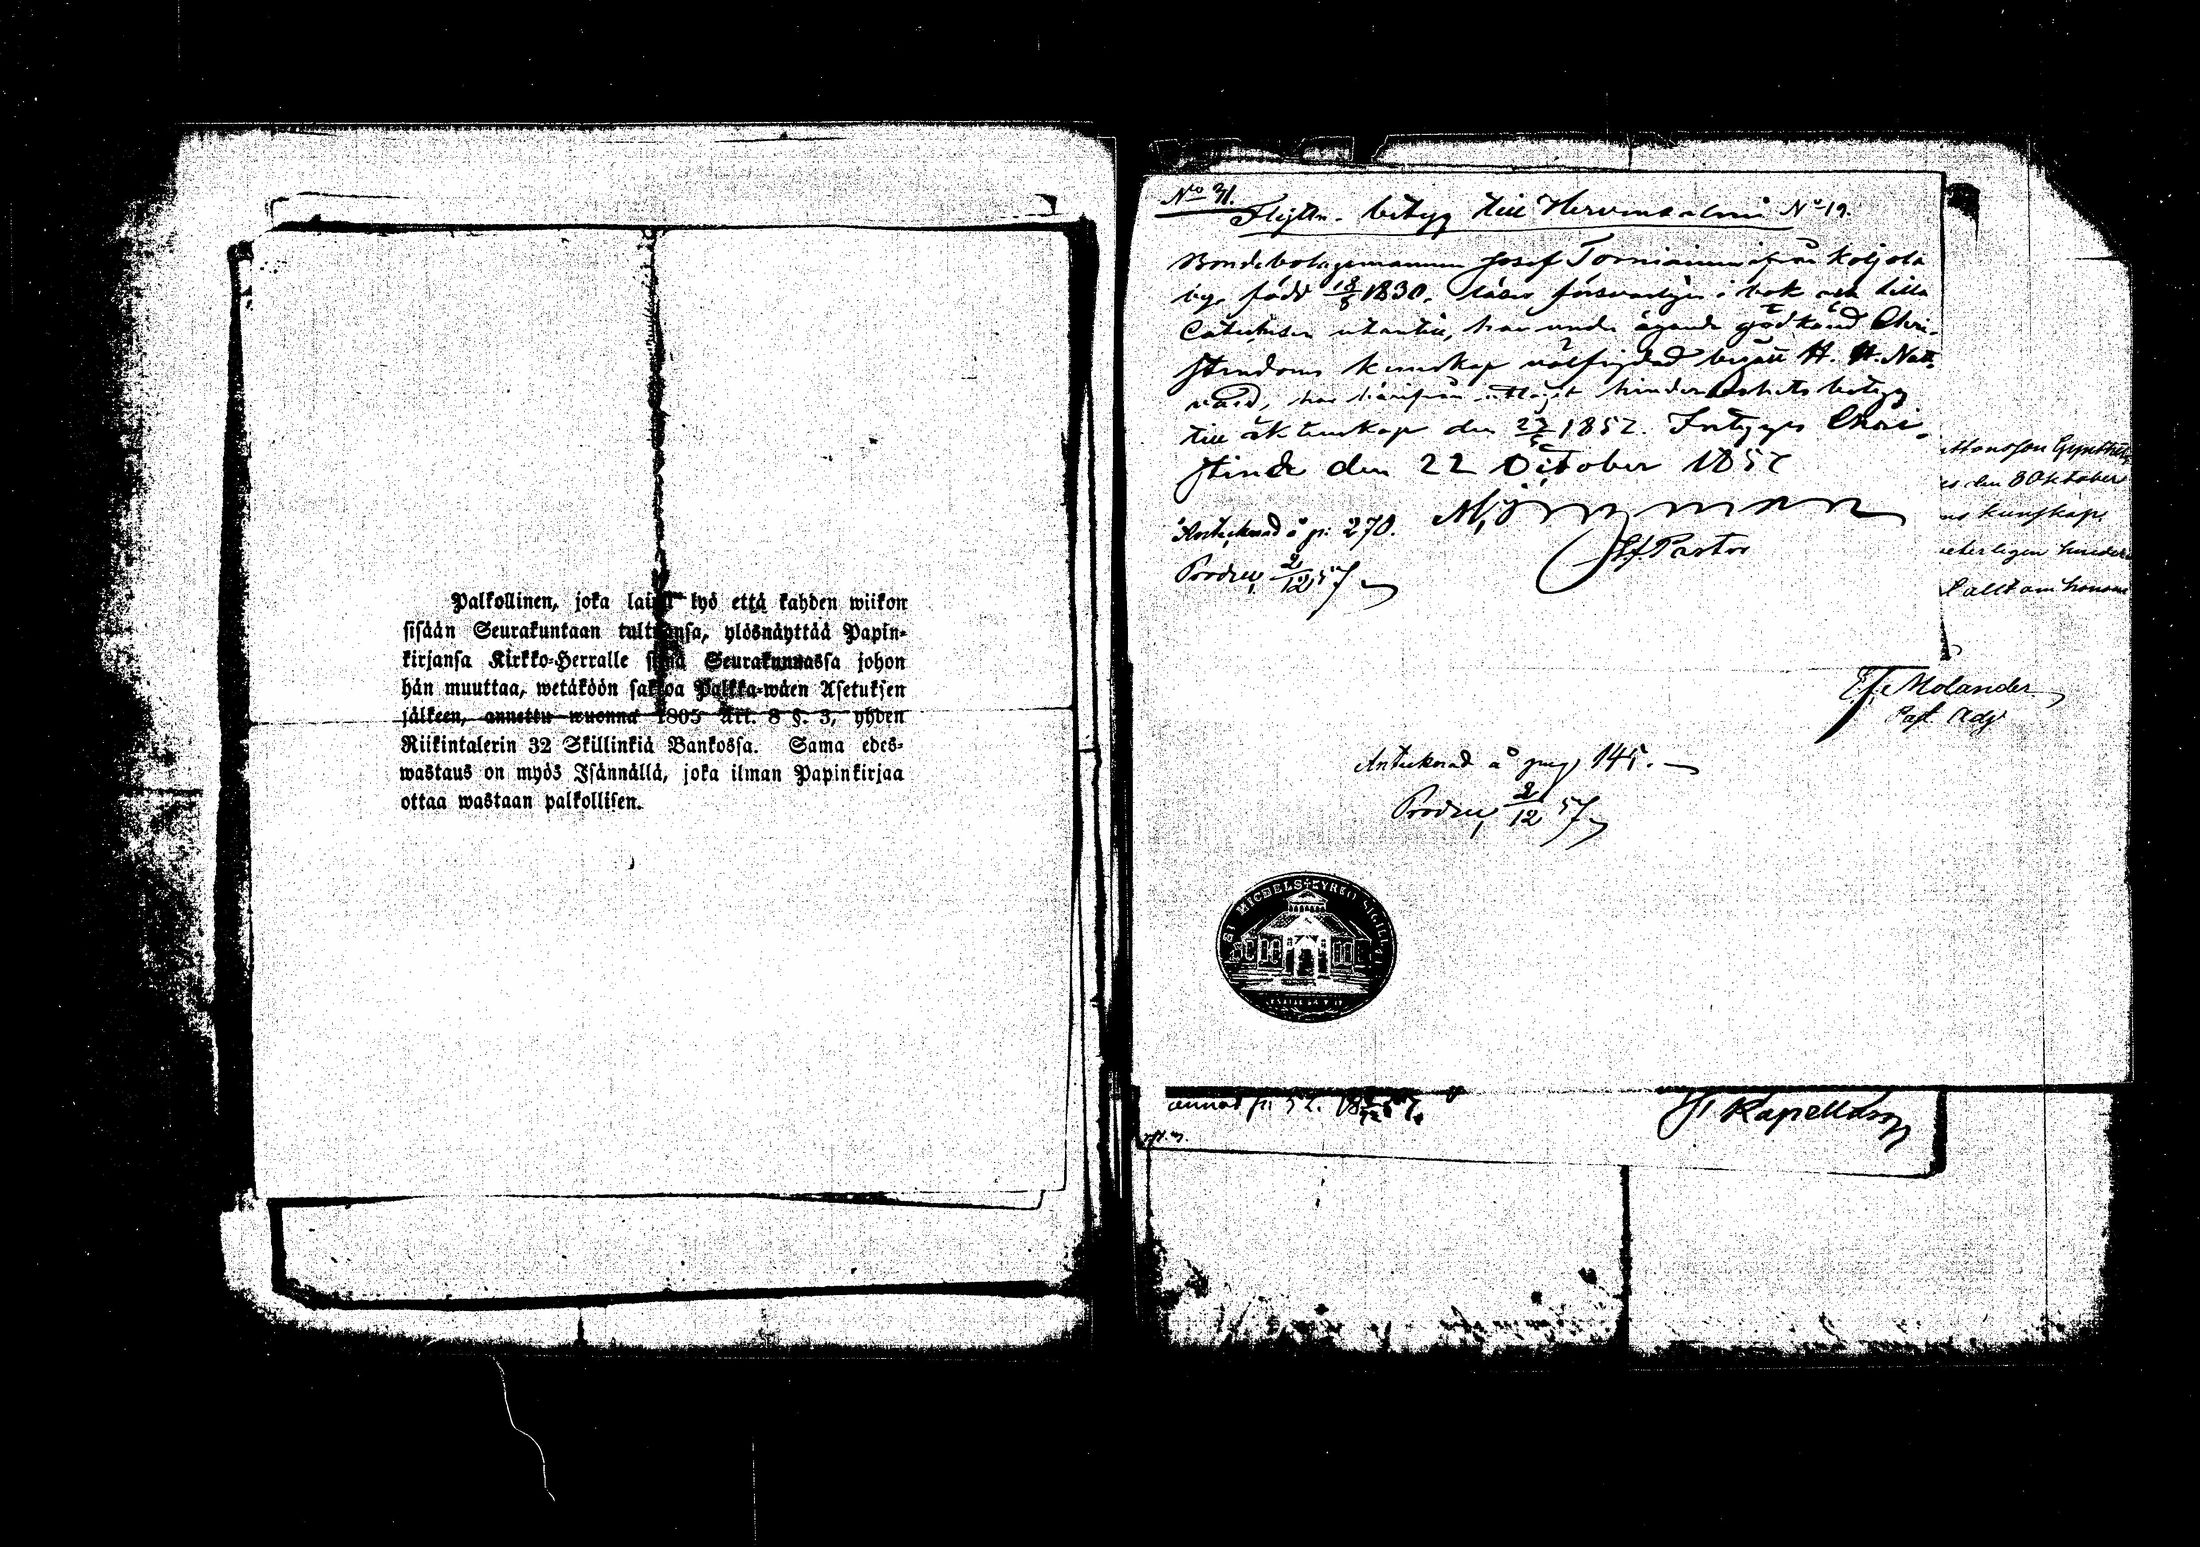 Palkollinen, joka lai lyö että kahden wiikon
sisään Seurakuntaan tultuansa, ylösnäyttää Papin-
kirjansa Kirkko-Herralle siinä Seurakunnassa johon
hän muuttaa, wetäköön sakkoa Palkka-wäen Asetuksen
jälkeen, annettu wuonna 1805 Art. 8 §. 3, yhden
Riikintalerin 32 Skillinkiä Bankossa. Sama edes-
wastaus on myös Isännällä, joka ilman Papinkirjaa
ottaa wastaan palkollisen.
No 31.
Flyttn. betyg till Hirvensalmi No 19.
Bondebolagsmannen Josef Torniainen ifrån Koljola
by, född 18/8 1830. läser försvarligen i bok och lilla
Catechesen utantill, har under ägande godkänd Chri-
stendoms kunskap välfrejdad begått H. H. Natt-
vard, har härifrån uttagit hinderlöshets betyg
till äktenskap den 1857. Intygas Chri-
stina den 22 October 1857
Antecknad å p: 270.
Pastor
2/12 57
ttonsson
es den 8 Oktober
ms kunskap,
eterligen hinder
E. F. Molander
Past. Adj.
Antecknad å pag. 145.
2/12 57
ST MICHELS KYRKO SIGILL
p: 52.
Kapellan